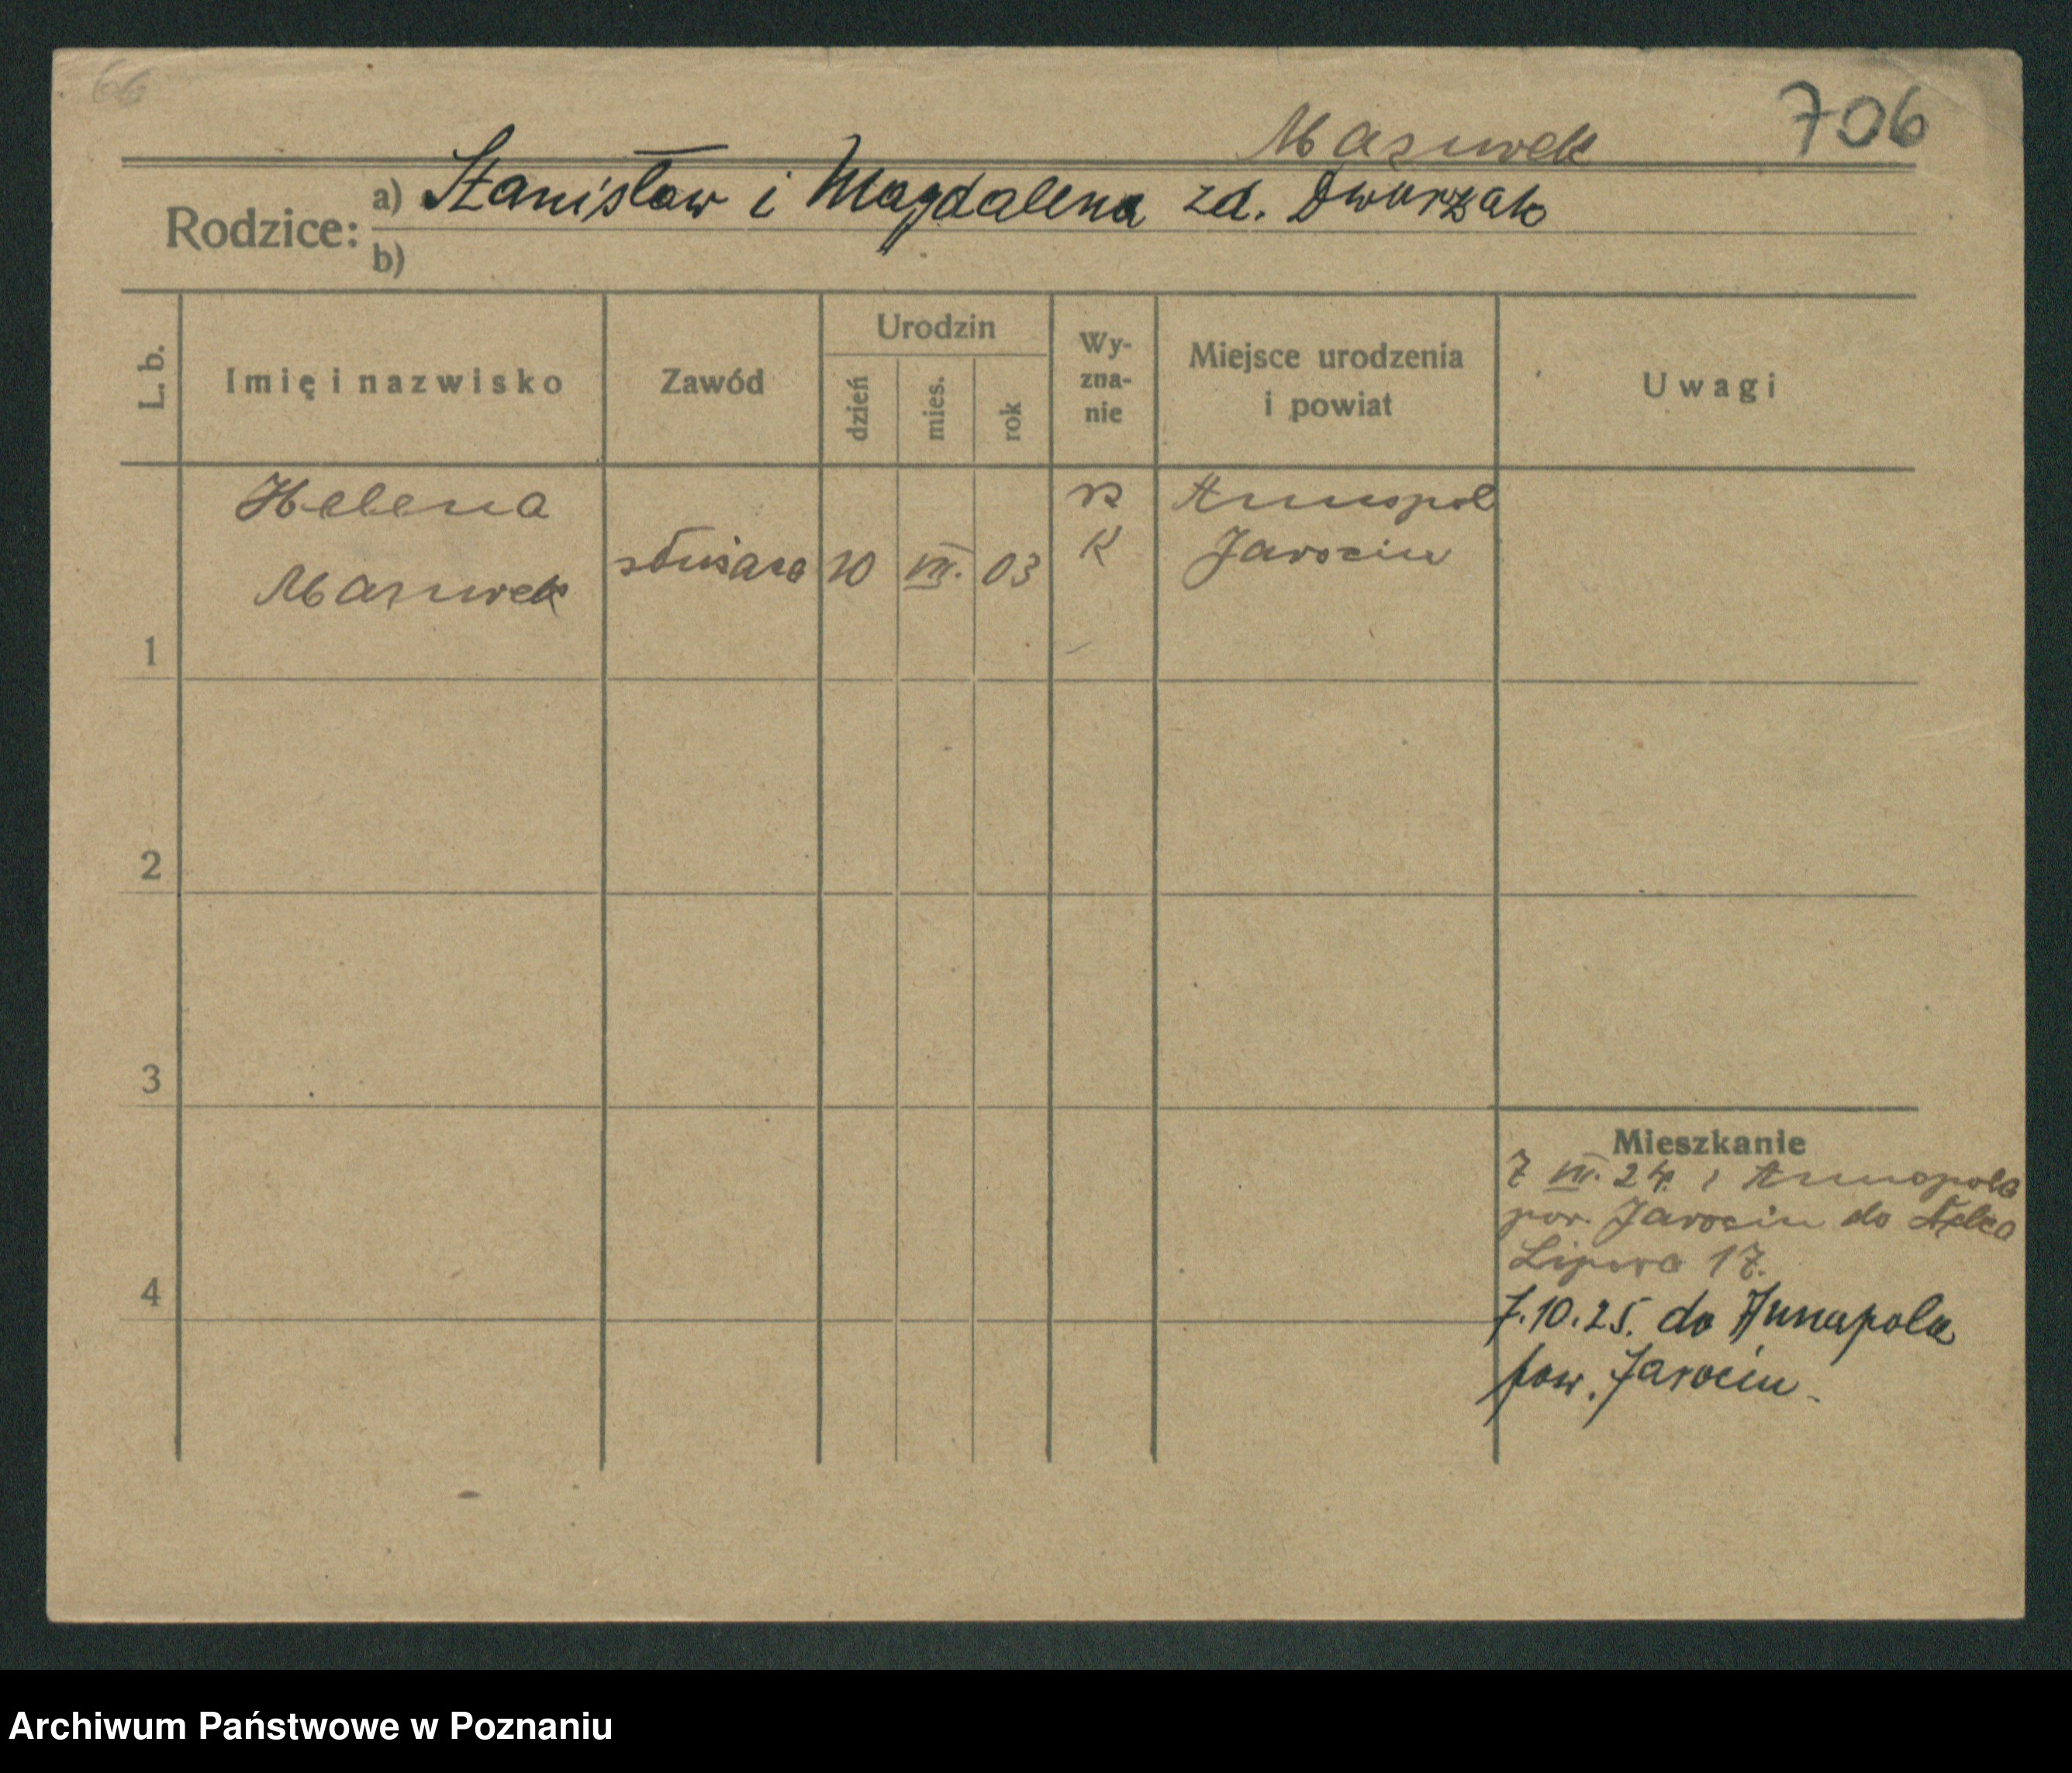 66
706
Mazurek
Rodzice: a) Stanisław i Magdalena zd. Dworzak
b)
L. b.
Imię i nazwisko
Zawód
Urodzin
dzień
mies.
rok
Wy-
zna-
nie
Miejsce urodzenia
i powiat
Uwagi
Helena
Mazurek
służąca
10
VII.
03
R
K
Annopol
Jarocin
1
2
3
4
Mieszkanie
7 VII. 24. z Annopola
pow. Jarocin do
Lipowa 17.
7.10.25. do Annapola
pow. Jarocin.
Archiwum Państwowe w Poznaniu